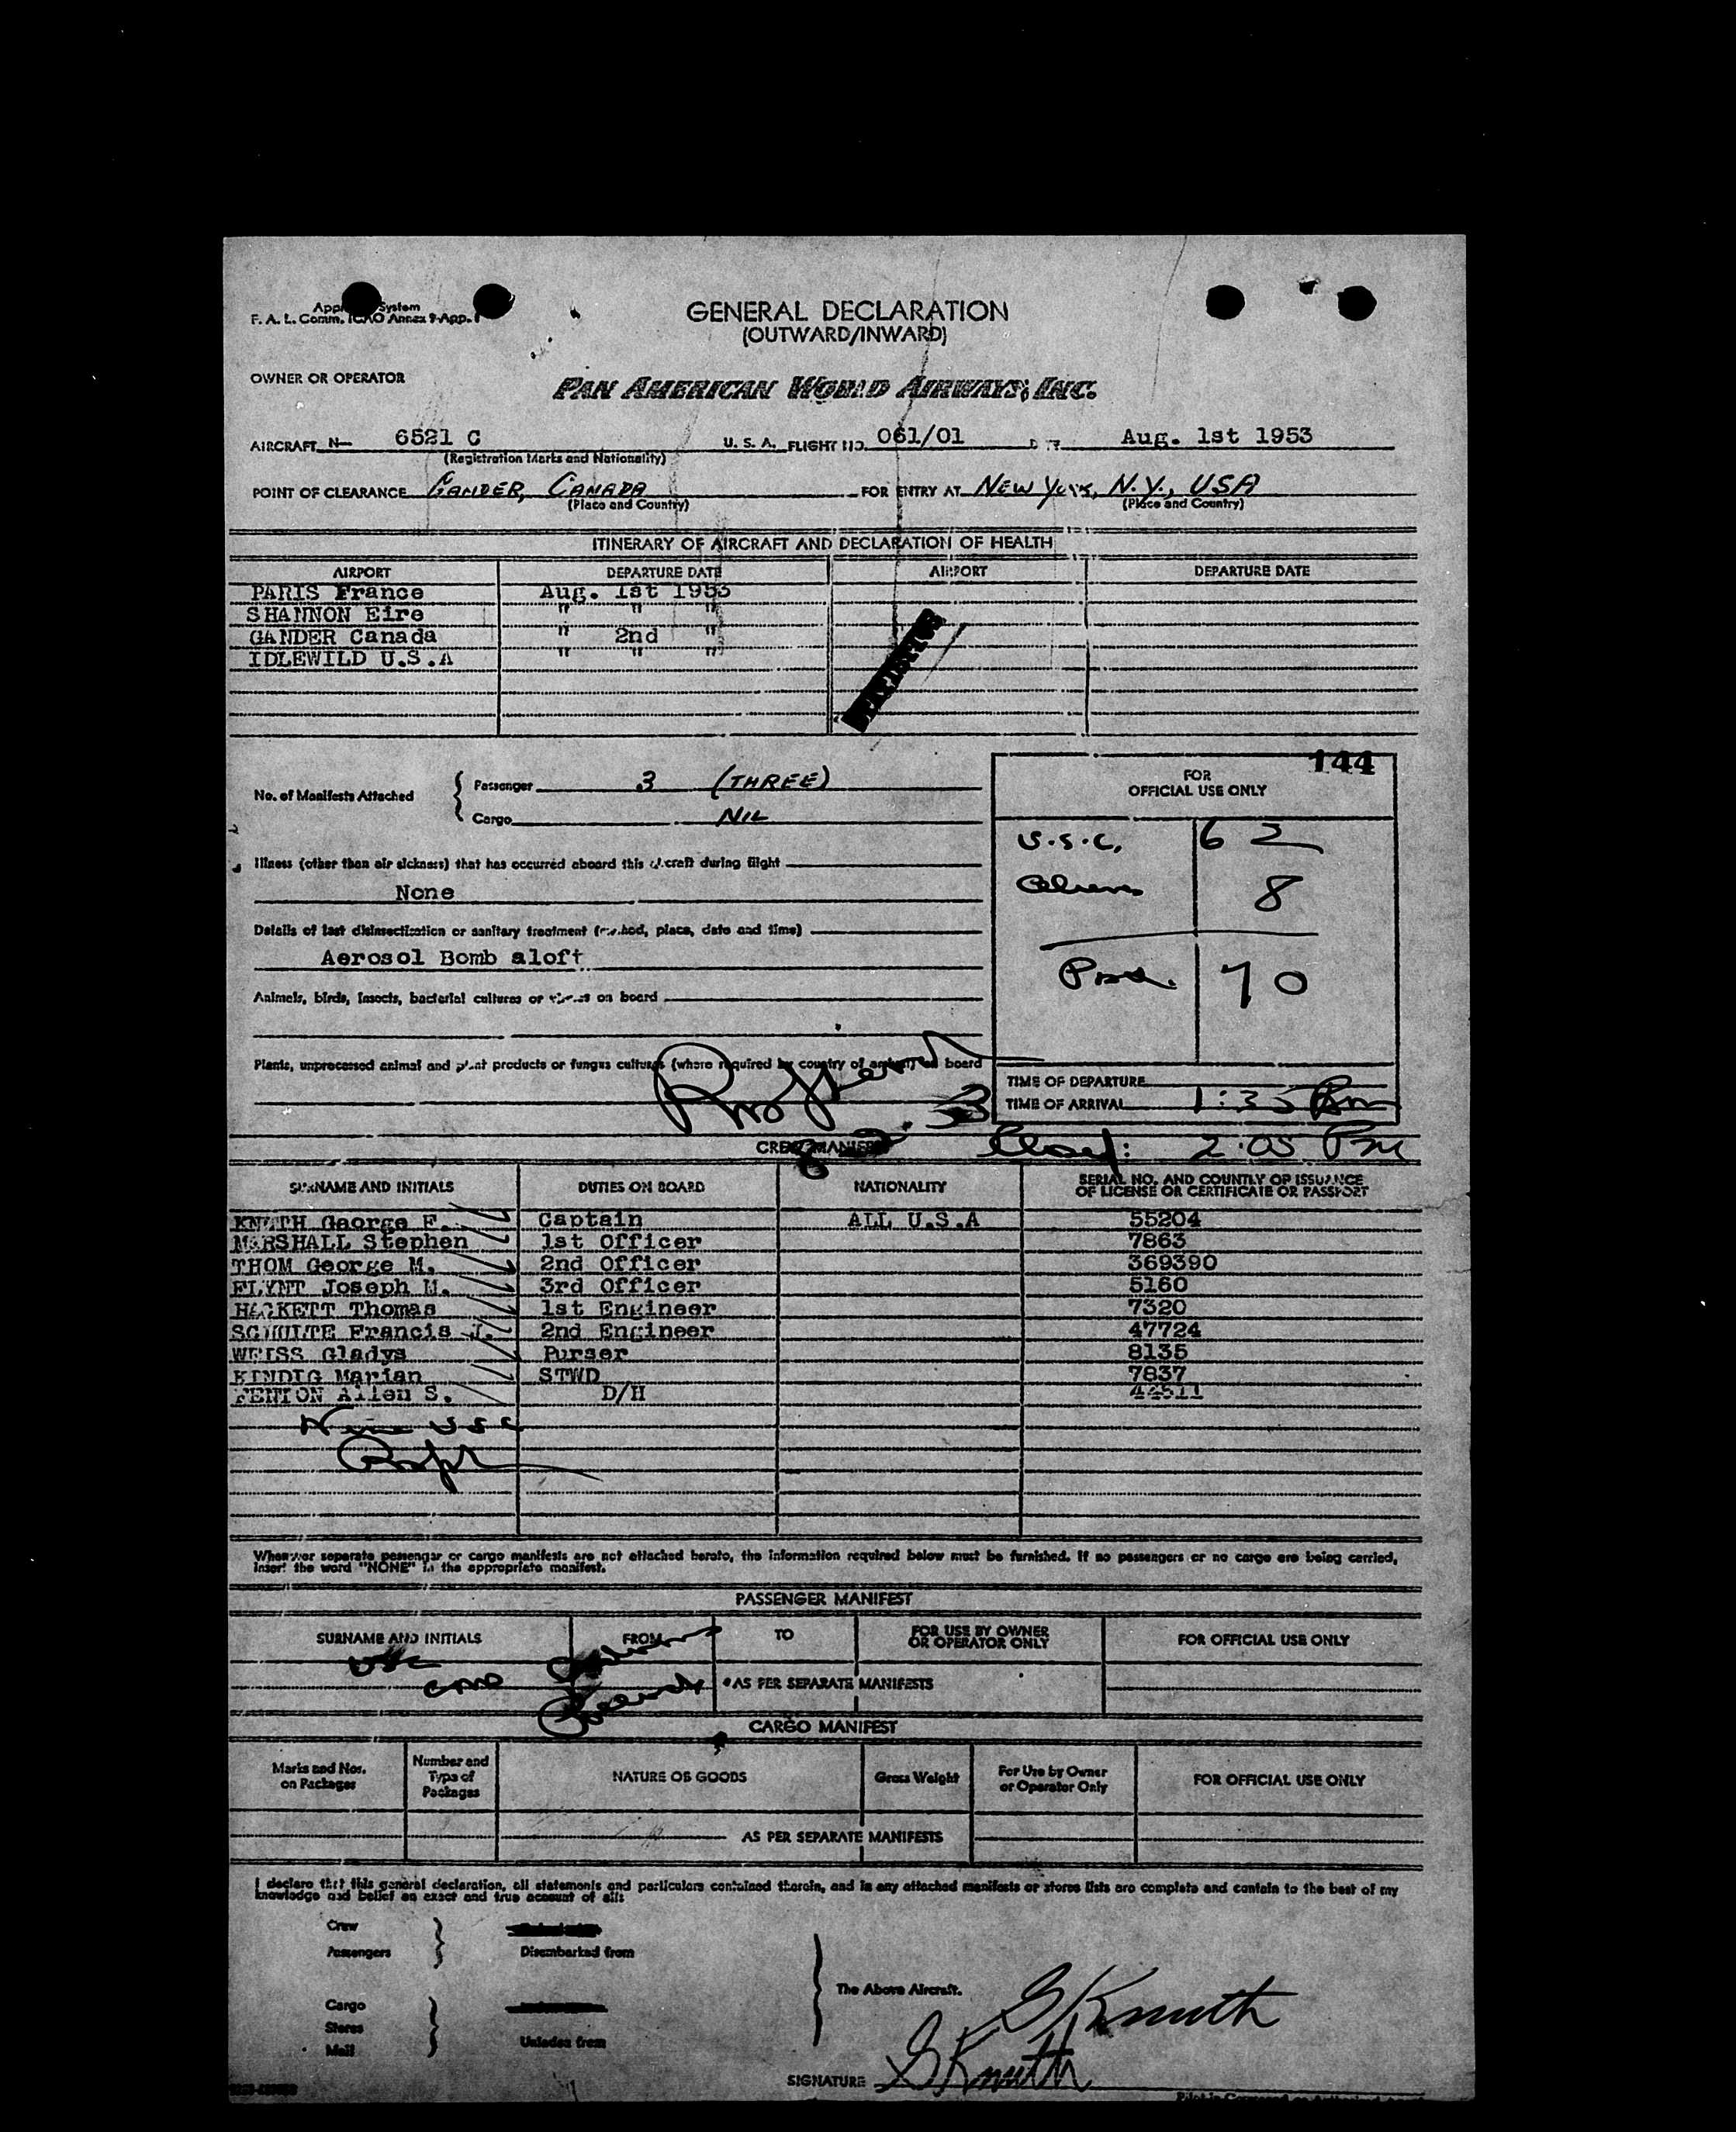 GENERAL DECLARATION
(OUTWARD/INWARD)
System
F. A. L. Comm. ICAO Annex 9-App. 1
OWNER OR OPERATOR
PAN AMERICAN WORLD AIRWAYS, INC.
AIRCRAFT N- 6521 C U. S. A. FLIGHT NO. 061/01 Aug. 1st 1953
(Registration Marks and Nationality)
POINT OF CLEARANCE GANDER, CANADA FOR ENTRY AT NEW YORK, N.Y., USA
(Place and Country) (Place and Country)
ITINERARY OF AIRCRAFT AND DECLARATION OF HEALTH
AIRPORT DEPARTURE DATE AIRPORT DEPARTURE DATE
PARIS France Aug. 1st 1953
SHANNON Eire " " "
GANDER Canada " 2nd "
IDLEWILD U.S.A " " "
144
No. of Manifests Attached
Passenger 3 (THREE)
Cargo NIL
FOR
OFFICIAL USE ONLY
U.S.C. 62
Aliens 8
70
Illness (other than air sickness) that has occurred aboard this aircraft during flight
None
Details of last disinsectization or sanitary treatment (method, place, date and time)
Aerosol Bomb aloft
Animals, birds, insects, bacterial cultures or viruses on board
Plants, unprocessed animal and plant products or fungus cultures (where required by country of arrival) on board
TIME OF DEPARTURE
TIME OF ARRIVAL 1:35 Pm
Closed: 2:05 Pm
CREW MANIFEST
SURNAME AND INITIALS DUTIES ON BOARD NATIONALITY SERIAL NO. AND COUNTRY OF ISSUANCE
OF LICENSE OR CERTIFICATE OR PASSPORT
KNUTH George F. Captain ALL U.S.A 55204
MARSHALL Stephen 1st Officer 7863
THOM George M. 2nd Officer 369390
FLYNT Joseph 3rd Officer 5160
HACKETT Thomas 1st Engineer 7320
SCHULTE Francis J. 2nd Engineer 47724
WEISS Gladys Purser 8135
KINDIG Marian STWD 7837
FENTON Allen S. D/H 44511
Nine USC
Whenever separate passenger or cargo manifests are not attached hereto, the information required below must be furnished. If no passengers or no cargo are being carried,
insert the word "NONE" in the appropriate manifest.
PASSENGER MANIFEST
SURNAME AND INITIALS FROM TO FOR USE BY OWNER
OR OPERATOR ONLY FOR OFFICIAL USE ONLY
AS PER SEPARATE MANIFESTS
CARGO MANIFEST
Marks and Nos.
on Packages
Number and
Type of
Packages
NATURE OF GOODS
Gross Weight
For Use by Owner
or Operator Only
FOR OFFICIAL USE ONLY
AS PER SEPARATE MANIFESTS
I declare that this general declaration, all statements and particulars contained therein, and in any attached manifests or stores lists are complete and contain to the best of my
knowledge and belief an exact and true account of all:
Crew
Passengers Disembarked from
Cargo
Stores
Mail Unladen from
The Above Aircraft.
G Knuth
SIGNATURE G Knuth